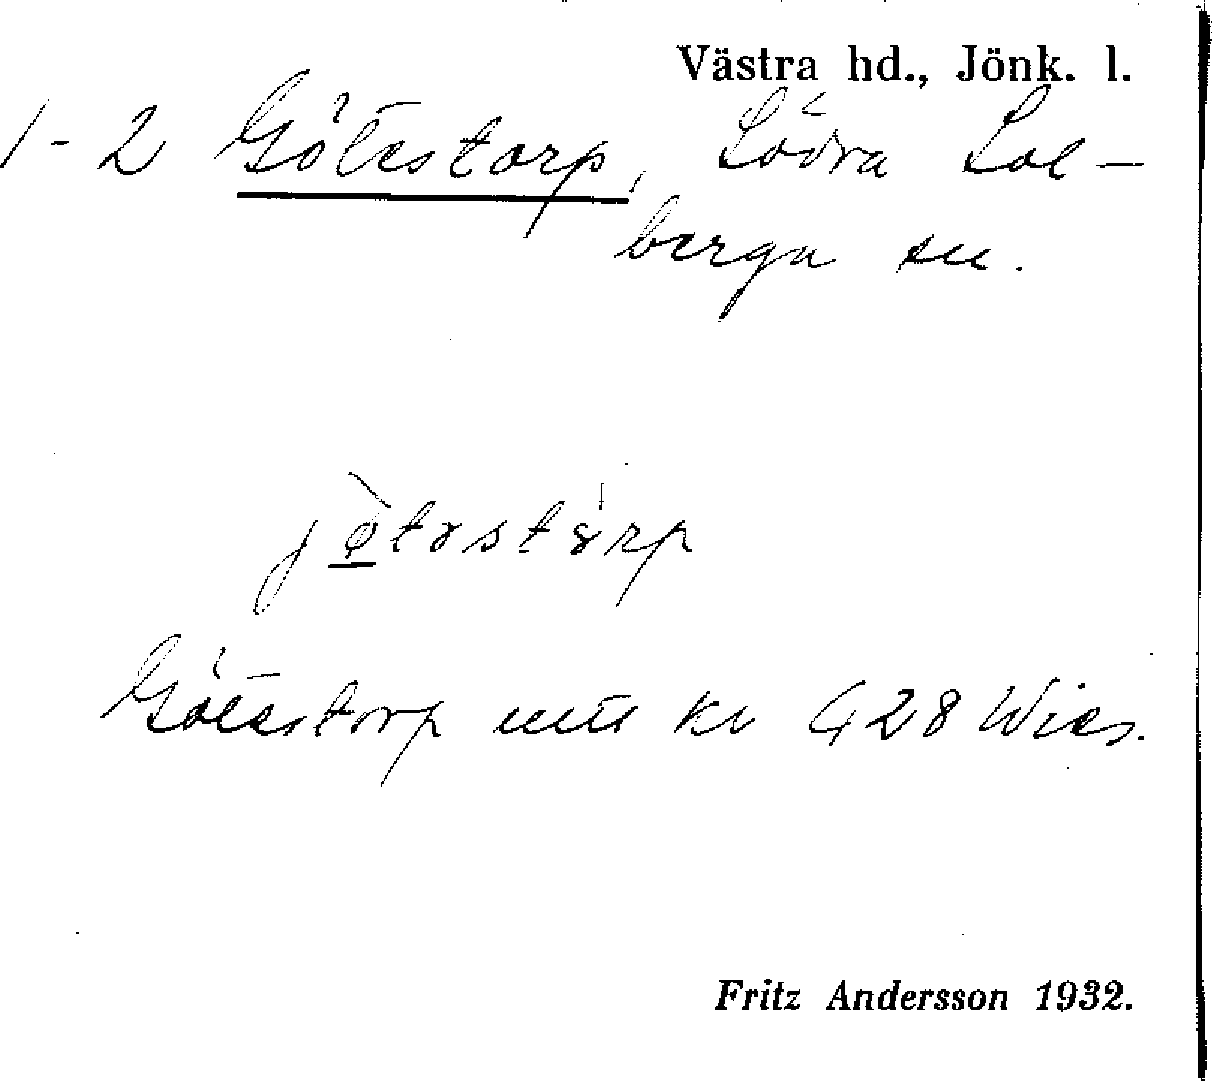 Västra hd., Jönk. l.
1-2 Götestorp, Södra Sol-
berga sn.
jø̀tɤstɤ̀rp
Götestorp mtl kr 428 Wies.
Fritz Andersson 1932.